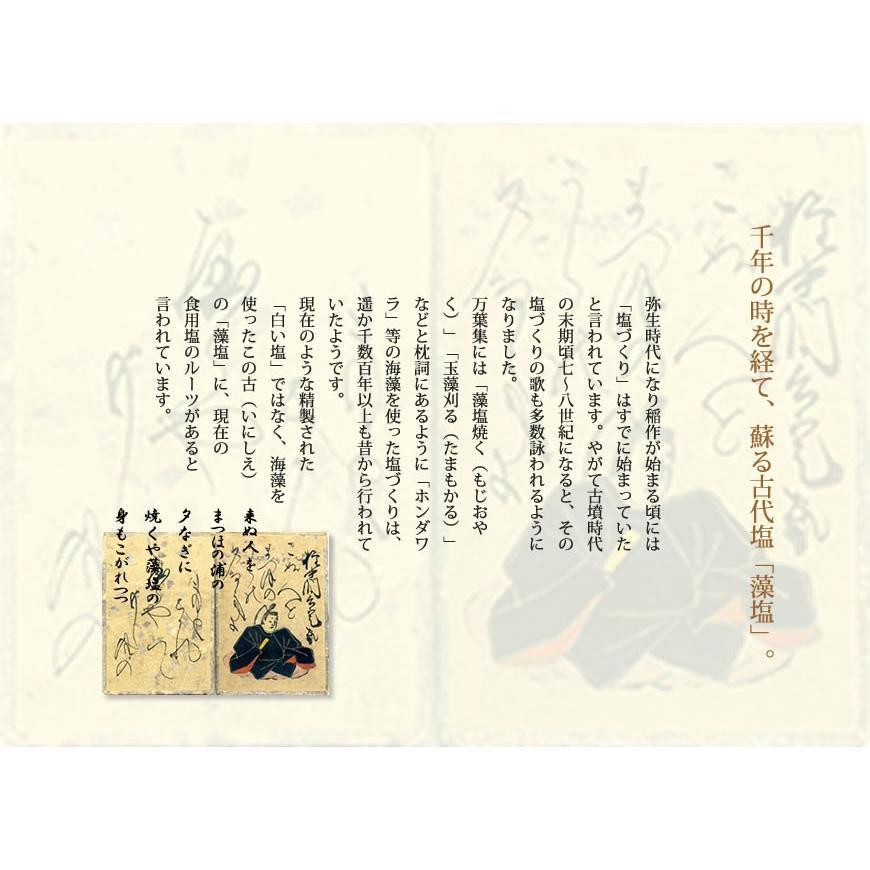 千年の時を経て、蘇る古代塩「藻塩」。
弥生時代になり稲作が始まる頃には
「塩づくり」はすでに始まっていた
と言われています。やがて古墳時代
の末期頃七〜八世紀になると、その
塩づくりの歌も多数詠われるように
なりました。
万葉集には「藻塩焼く（もじおや
く）」「玉藻刈る（たまもかる）」
などと枕詞にあるように「ホンダワ
ラ」等の海藻を使った塩づくりは、
遥か千数百年以上も昔から行われて
いたようです。
現在のような精製された
「白い塩」ではなく、海藻を
使ったこの古（いにしえ）
の「藻塩」に、現在の
食用塩のルーツがあると
言われています。
来ぬ人を
まつほの浦の
夕なぎに
焼くや藻塩の
身もこがれつつ